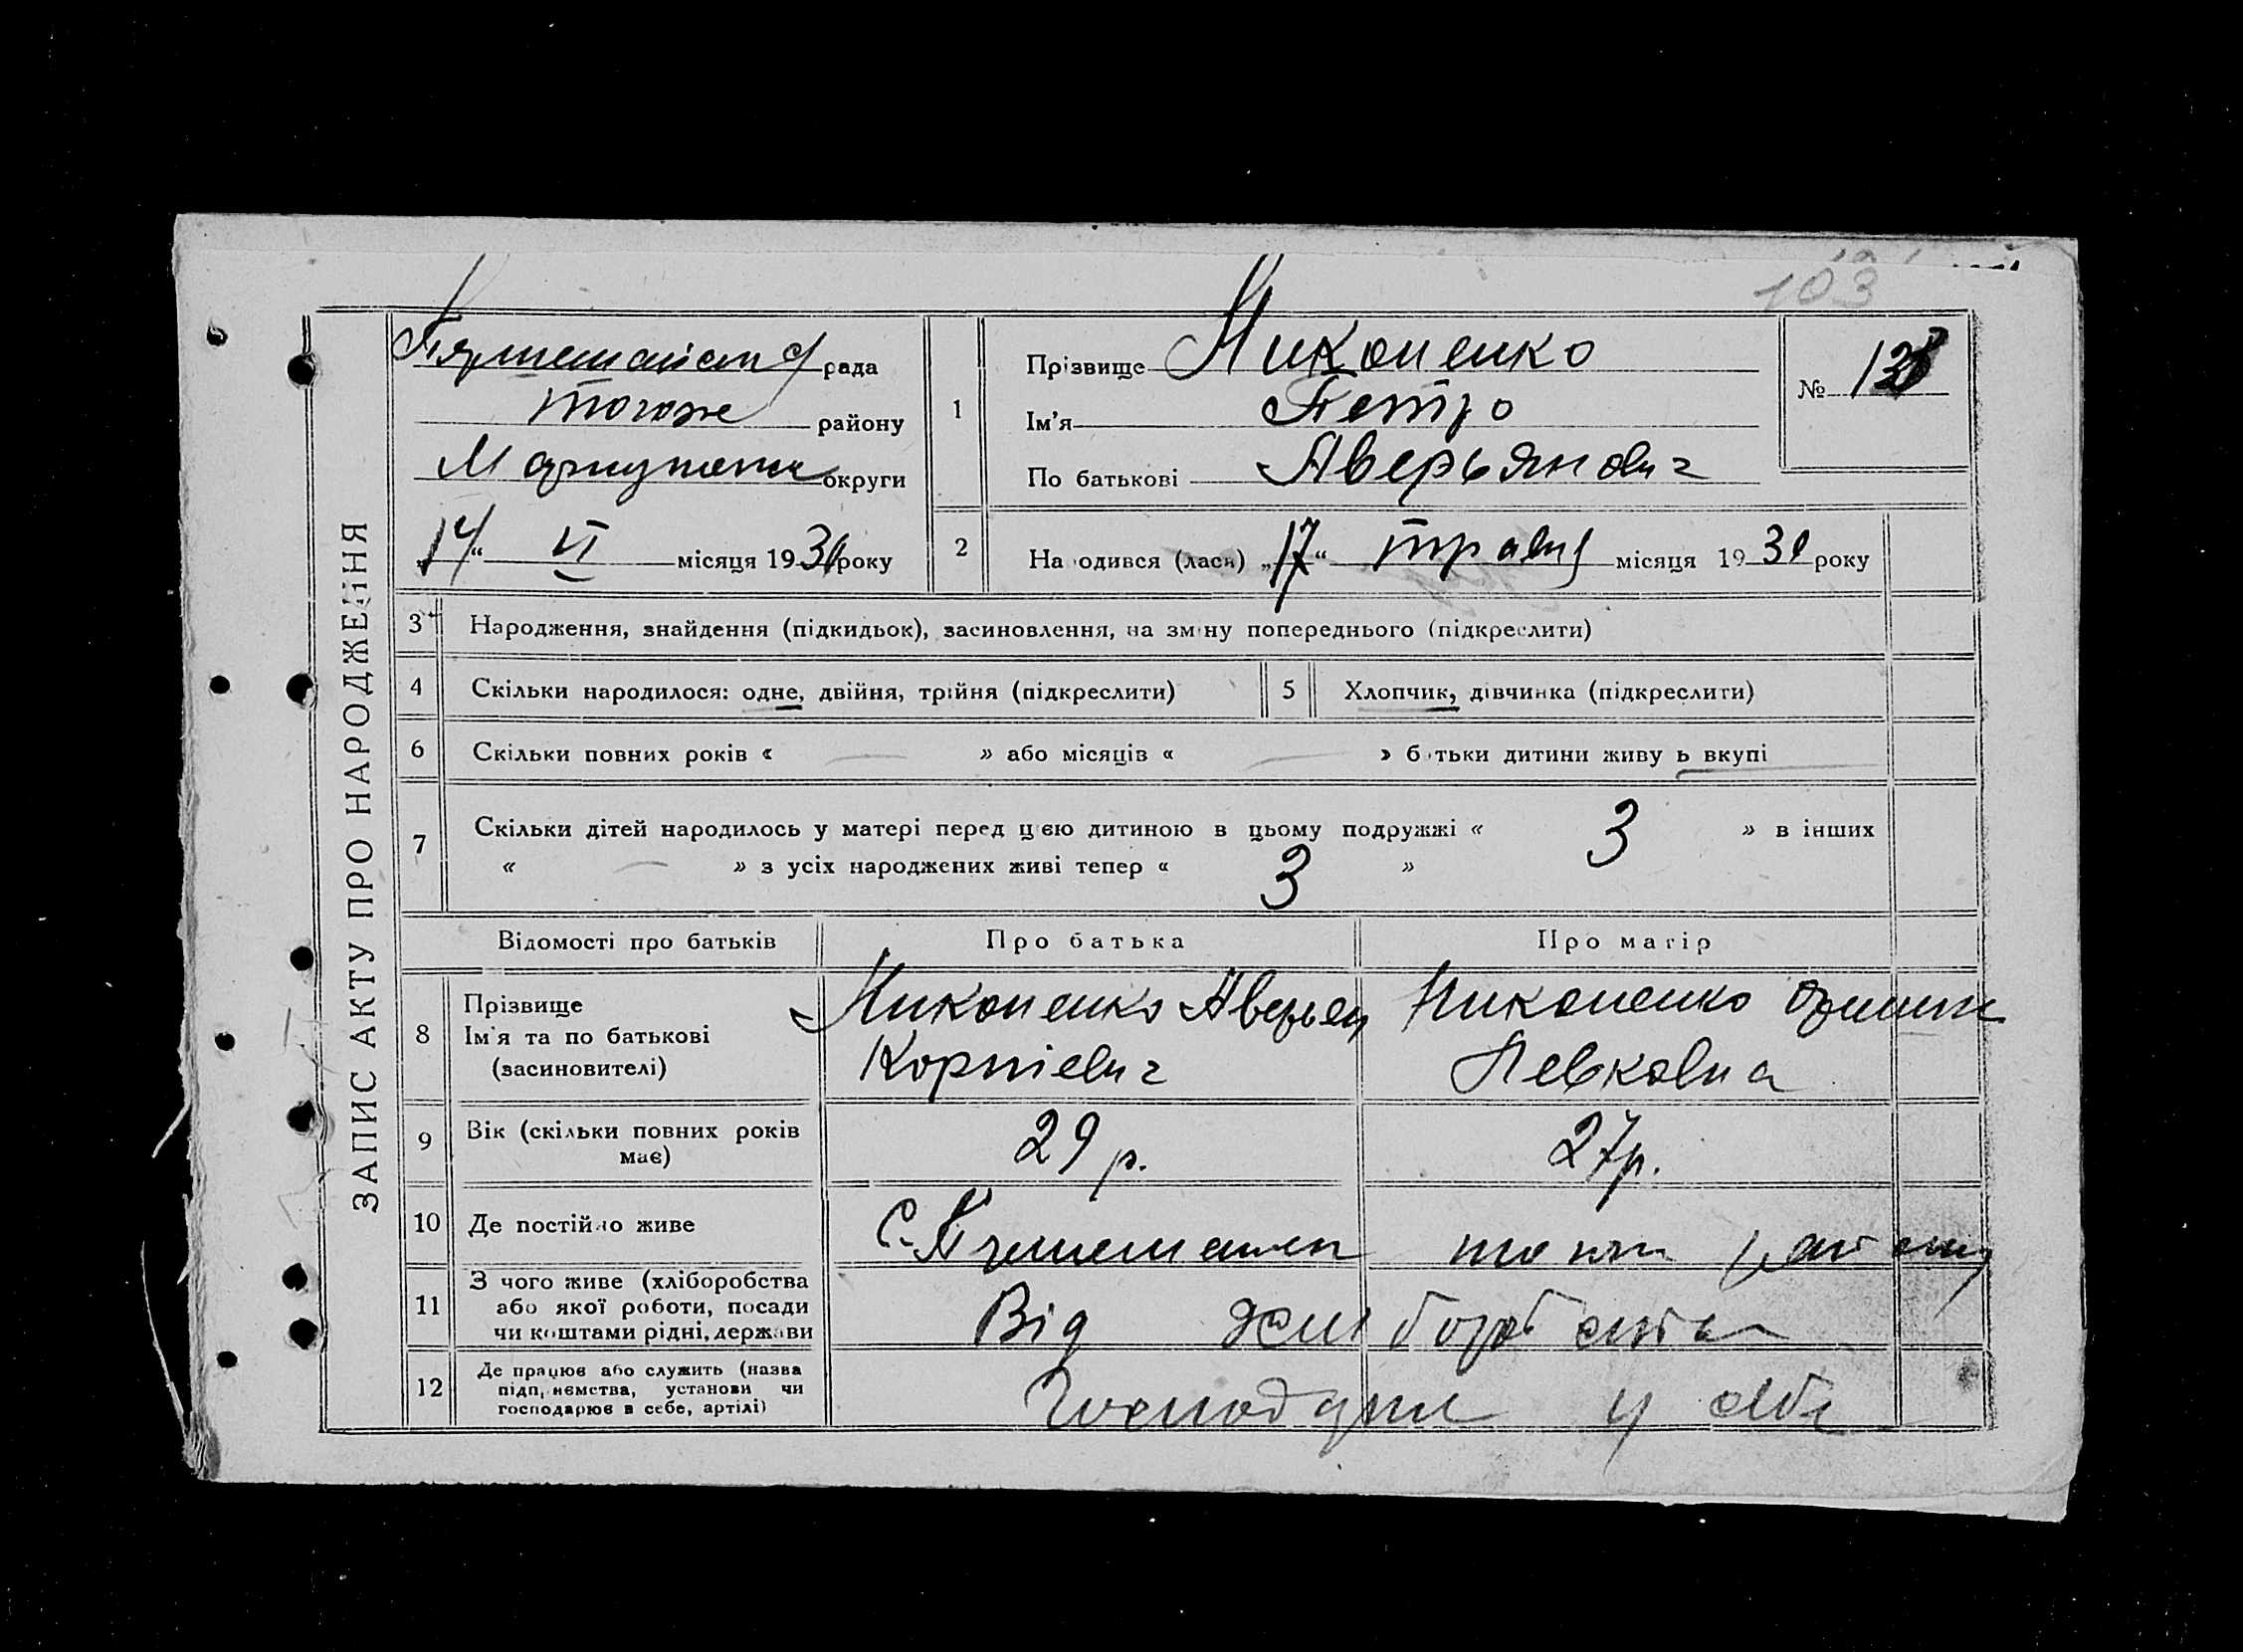 103
ЗАПИС АКТУ ПРО НАРОДЖЕННЯ
рада
тогоже району
округи
14 “ VI місяця 1930 року
1
Прізвище Никоненко
Ім’я Петро
По батькові Аверьянович
№
2
Народився (лася) „17“ травня місяця 1930 року
3 Народження, знайдення (підкидьок), засиновлення, на зміну попереднього (підкреслити)
4 Скільки народилося: одне, двійня, трійня (підкреслити)
5 Хлопчик, дівчинка (підкреслити)
6 Скільки повних років « — » або місяців « — » батьки дитини живуть вкупі
7 Скільки дітей народилось у матері перед цією дитиною в цьому подружжі « 3 » в інших
« — » з усіх народжених живі тепер « 3 »
Відомості про батьків Про батька Про матір
8 Прізвище Ім’я та по батькові (засновителі)
Никоненко Аверьян
Корнієвич
Никоненко
Левковна
9 Вік (скільки повних років має) 29 р. 27 р.
10 Де постійно живе С.
11 З чого живе (хліборобства або якої роботи, посади чи коштами рідні, держави
Від хліборобства
12 Де працює або служить (назва підприємства, установи чи господарює в себе, артілі)
у себе